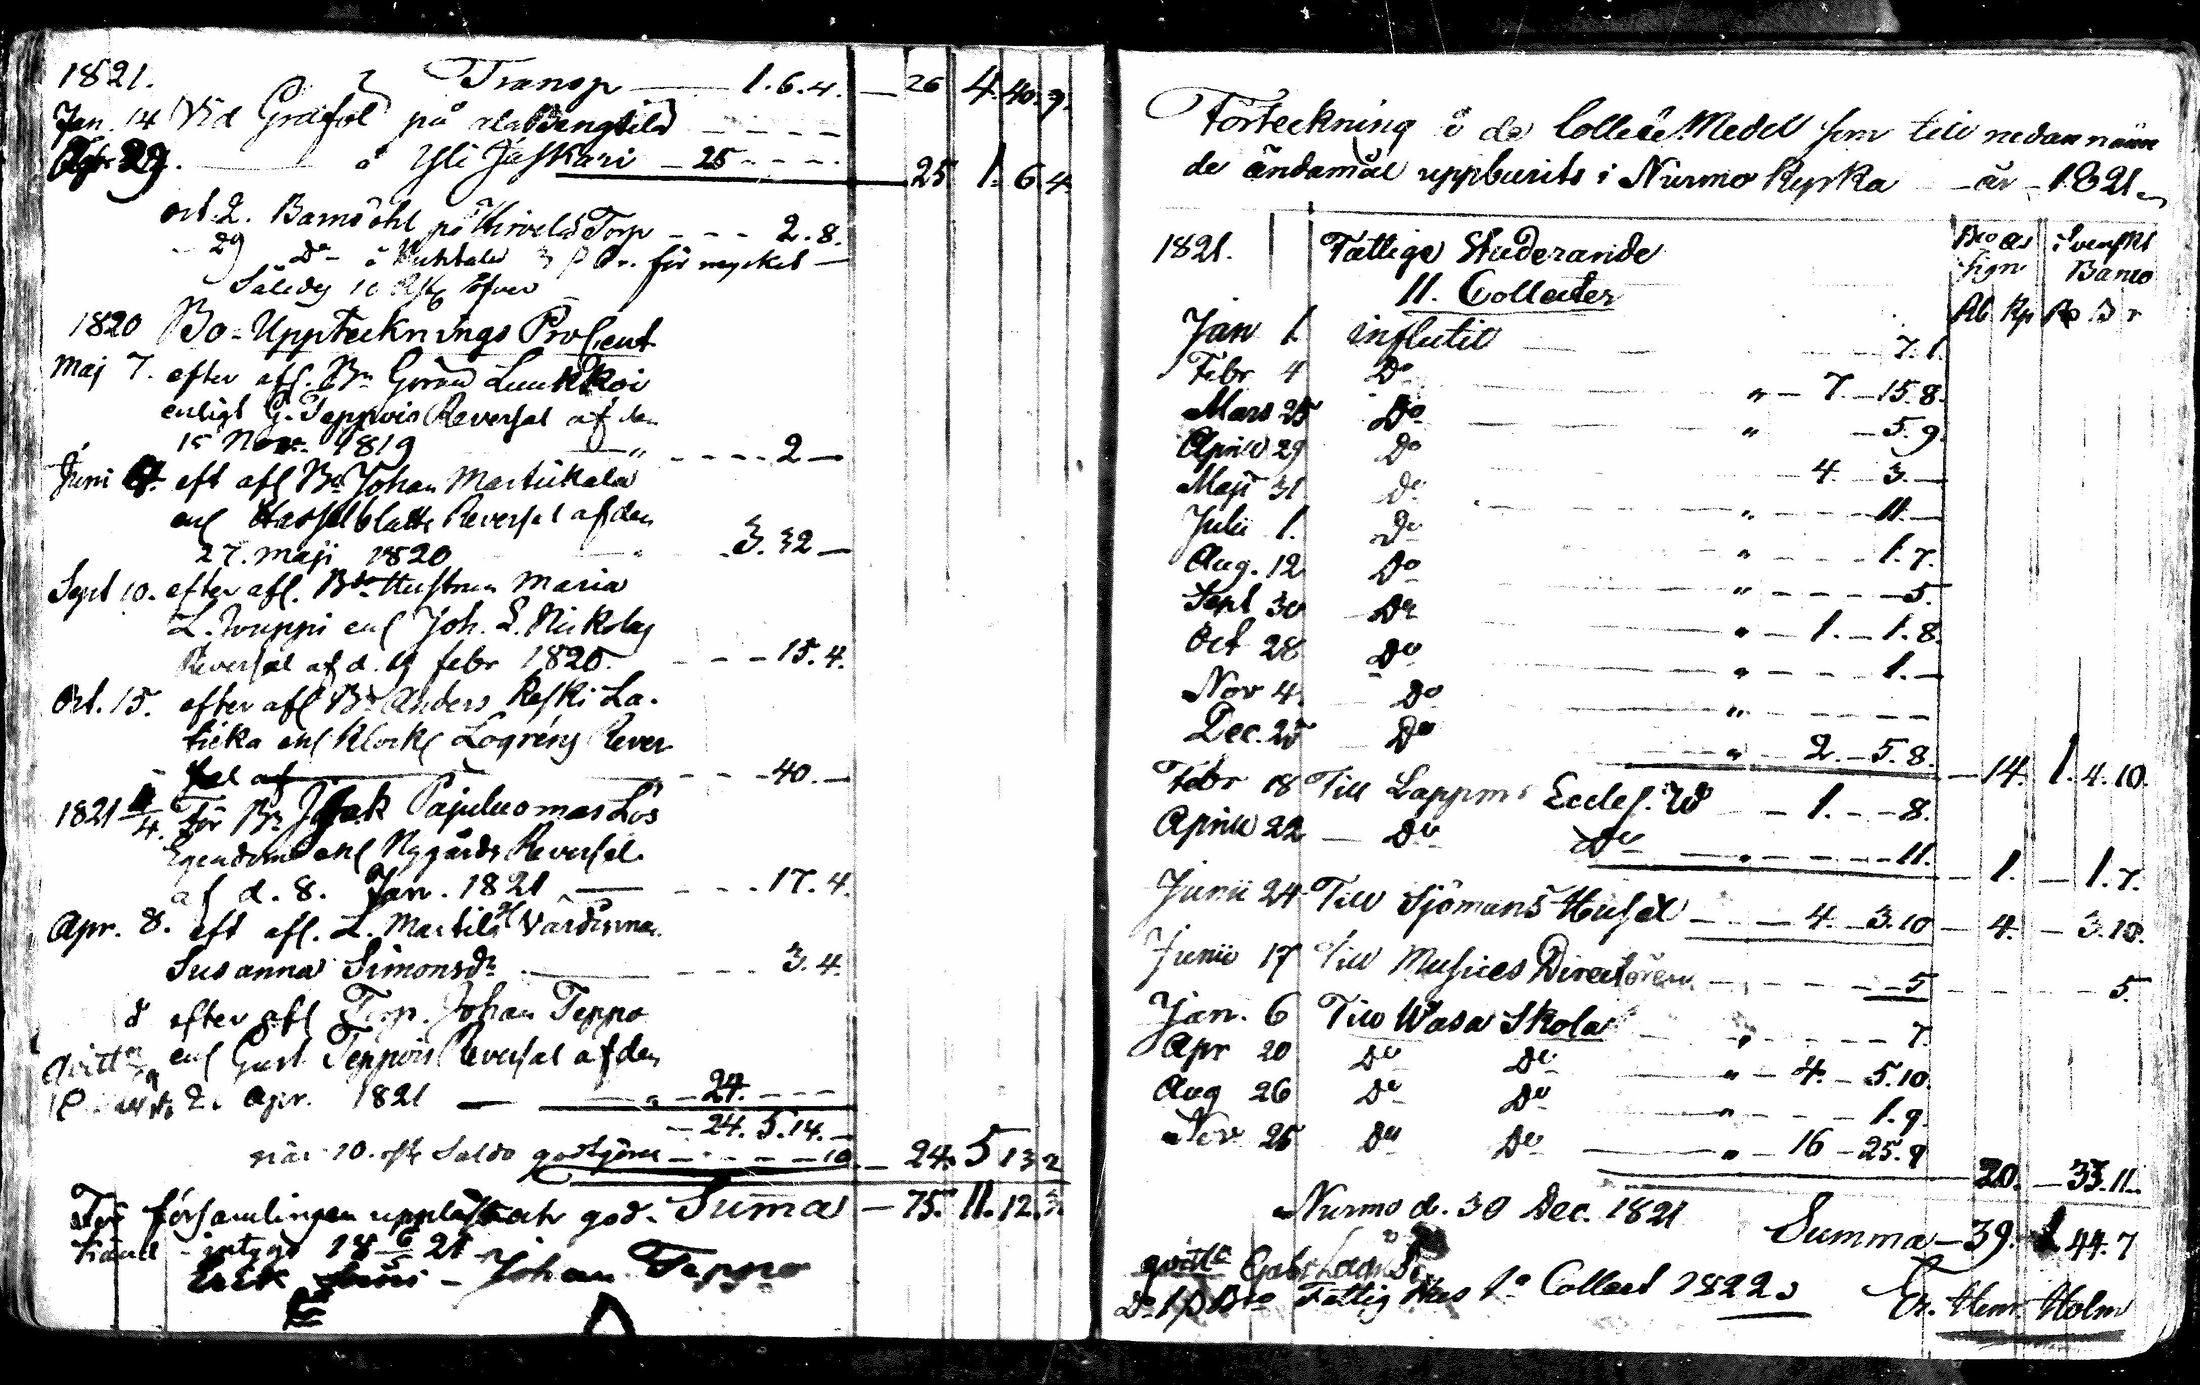 1821. Transp — 1.6.4. — 26 4. 40. 9.
Jan. 14 Vid Graföl på
Apr 29. — å Yli Jaskari — 25 - - - 25 1. 6. 4
oct. 2. Barnsöhl på Hirvelä Torp - - - 2. 8.
29 Do å för mycket —
Således 10 öfver
1820 Bo-Upptecknings Procent
Maj 7. efter afl. Bn Göran Luukkoi
enligt G. Teppois Reversal af den
15 Nov. 1819 - - - - 2 —
Juni eft afl Bn Johan Martikala
enl Hasselblatts Reversal af den
27. maji 1820 3. 32 —
Sept 10. efter afl. Bde Hustrun Maria
L. Jouppi enl Joh. L. Nickolas
Reversal af d. 19 febr 1820. - - - 15. 4.
Oct. 15. efter afl Bn Anders
enl Klock Logréns Rever
sal af - - - 40. —
1821 4. För Bn Isak Pajuluomas Lös
Egendom enl Nygårds Reversal
af d. 8. Jan. 1821 — - - - 17. 4.
Apr. 8. eft afl. L. Martila Värdinna
Susanna Simonsdr - - - 3. 4.
d efter afl Torp. Johan Teppo
enl Gust. Teppois Reversal af den
2. Apr. 1821 — 24. - - -
24. 5. 14. —
när 10. Saldo godtgöres - - - - 10 — 24. 5 13 2
För församlingen uppläst och god- Suma — 75. 11. 12. 3
känd - intygar 18 6/5 21
Erik — Johan Teppo
Förteckning å de Collect Medel som till nedannämn
de ändamål uppburits i Nurmo Kyrka — år — 1821
1821. Fattige Studerande Bco As Svenskt
11. Collecter sign Banco
Rb Kp R S r
Jan 1 influtit — — 7. 1.
Febr 4 Do " — 7. — 15. 8.
Mars 25 Do " — 5. 9.
April 29 Do 4. 3. —
Maji 31 Do " - - - 11. —
Julii 1. Do " - - - 1. 7.
Aug. 12 Do " - - - - 5.
Sept 30 Do " — 1. — 1. 8.
Oct 28 Do " - - - 1. —
Nov 4. Do " - - - - -
Dec. 25 Do " — 2. — 5. 8. — 14. 1. 4. 10.
Febr 18 Till Lappm: Eccles. W — 1. - - 8.
April 22 — Do Do — " - - - 11. — 1. — 1. 7.
Junii 24 Till Sjömans Huset — 4. 3. 10 — 4. — 3. 10.
Junii 17 Till Musices Directören - - - 5 - - - 5.
Jan. 6 Till Wasa Skola - - - 7.
Apr 20 Do Do " — 4. — 5. 10.
Aug 26 Do Do " - - - 1. 9.
Nov 25 Do Do " 16 — 25. 9 — 20. — 33. 11.
Nurmo d. 30 Dec. 1821
Summa — 39. 1 44. 7
Fattig Hus 1a Collect 1822
Er. Henr. Holm